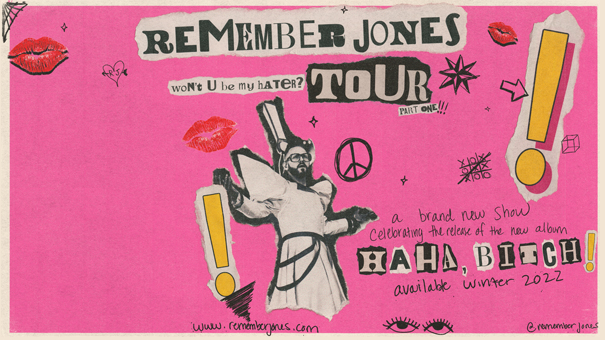 REMEMBER JONES
R+J
WON'T U be my HATER?
TOUR
PART ONE!!!
a brand new show
celebrating the release of the new album
HAHA, BITCH!
available winter 2022
www.rememberjones.com
@rememberjones